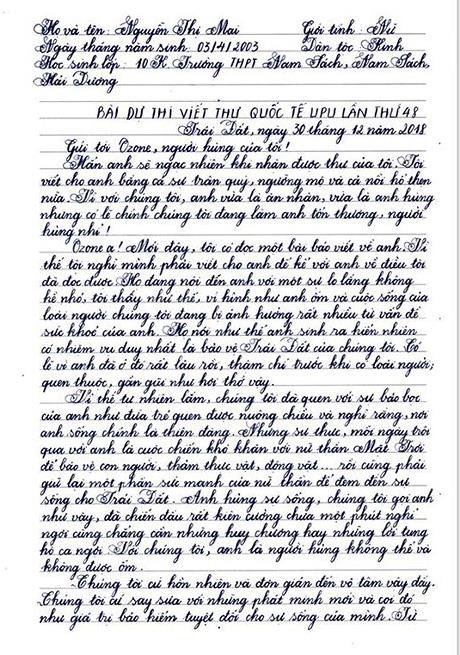 Họ và tên: Nguyễn Thị Mai Giới tính: Nữ
Ngày tháng năm sinh: 03/4/2003 Dân tộc: Kinh
Học sinh lớp: 10K. Trường THPT Nam Sách, Nam Sách,
Hải Dương
BÀI DỰ THI VIẾT THƯ QUỐC TẾ UPU LẦN THỨ 48
Trái Đất, ngày 30 tháng 12 năm 2018
Gửi tới Ozone, người hùng của tôi!
Hẳn anh sẽ ngạc nhiên khi nhận được thư của tôi. Tôi
viết cho anh bằng cả sự trân quý, ngưỡng mộ và cả nỗi hổ thẹn
nữa. Vì với chúng tôi, anh vừa là ân nhân, vừa là anh hùng
nhưng có lẽ chính chúng tôi đang làm anh tổn thương, người
hùng nhỉ!
Ozone ạ! Mới đây, tôi có đọc một bài báo viết về anh. Vì
thế tôi nghĩ mình phải viết cho anh để kể với anh về điều tôi
đã đọc được. Họ đang nói đến anh với một sự lo lắng không
hề nhỏ, tôi thấy như thế, vì hình như anh ốm và cuộc sống của
loài người chúng tôi đang bị ảnh hưởng rất nhiều từ vấn đề
sức khoẻ của anh. Họ nói như thể anh sinh ra hiển nhiên
có nhiệm vụ duy nhất là bảo vệ Trái Đất của chúng tôi. Có
lẽ vì anh đã ở đó rất lâu rồi, thậm chí trước khi có loài người;
quen thuộc, gần gũi như hơi thở vậy.
Vì thế tự nhiên lắm, chúng tôi đã quen với sự bảo bọc
của anh như đứa trẻ quen được nuông chiều và nghĩ rằng, nơi
anh sống chính là thiên đàng. Nhưng sự thực, mỗi ngày trôi
qua với anh là cuộc chiến khó khăn với nữ thần Mặt Trời
để bảo vệ con người, thảm thực vật, động vật... rồi cũng phải
giữ lại một phần sức mạnh của nữ thần để đem đến sự
sống cho Trái Đất. Anh hùng sự sống, chúng tôi gọi anh
như vậy, đã chiến đấu rất kiên cường chưa một phút nghỉ
ngơi cũng chẳng cần những huy chương hay những lời tung
hô ca ngợi. Với chúng tôi, anh là người hùng không thể và
không được ốm.
Chúng tôi cứ hồn nhiên và đơn giản đến vô tâm vậy đấy.
Chúng tôi cứ say sưa với những phát minh mới và coi đó
như giá trị bảo hiểm tuyệt đối cho sự sống của mình. Từ